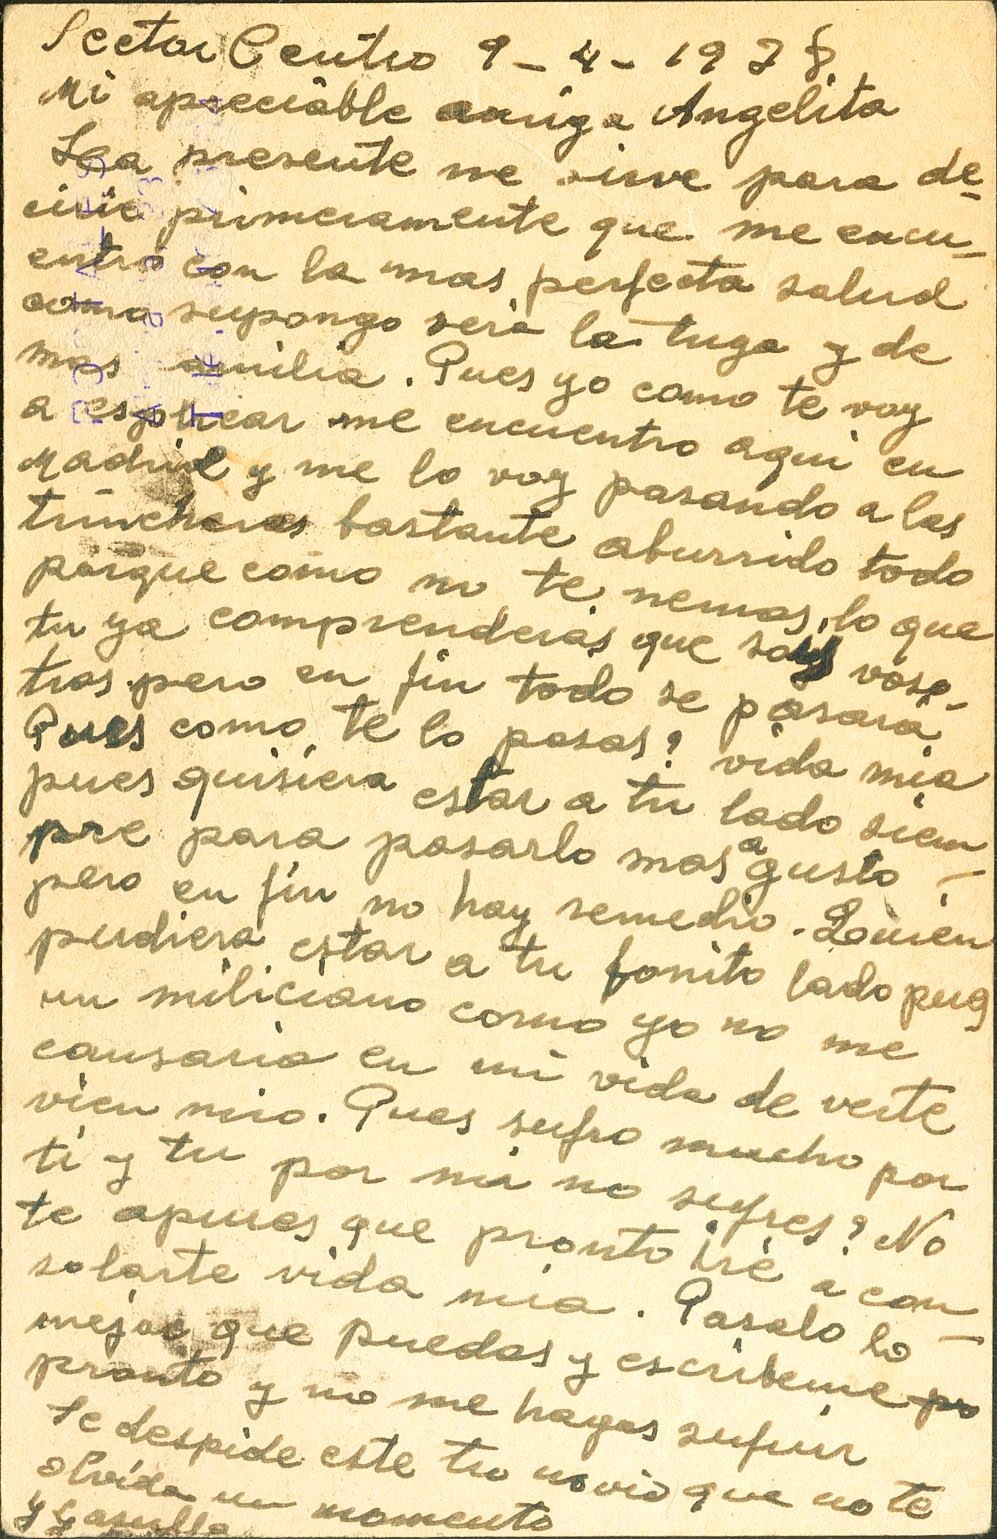 Sector Centro 9-4-1938
Mi apreciable amiga Angelita
La presente me sirve para de-
cirte primeramente que me encu-
entro con la mas perfecta salud
como supongo sera la tuga y de
mas amilia. Pues yo como te voy
a esplicar me encuentro aqui en
Madrid y me lo voy pasando a las
trincheras bastante aburrido todo
porque como no te nemos, lo que
tu ya comprenderas que sois voso-
tras pero en fin todo se pasara
Pues como te lo pasas? vida mia
pues quisiera estar a tu lado siem
pre para pasarlo mas a gusto -
pero en fin no hay remedio. Quien
pudiera estar a tu bonito lado pues
un miliciano como yo no me
causaria en mi vida de verte
vien mio. Pues sufro mucho por
ti y tu por mi no sufres? No
te apures que pronto iré a con-
solarte vida mia. Pasalo lo
mejor que puedas y escribeme
pronto y no me hagas sufrir
Se despide este tu novio que no te
olvida un momento